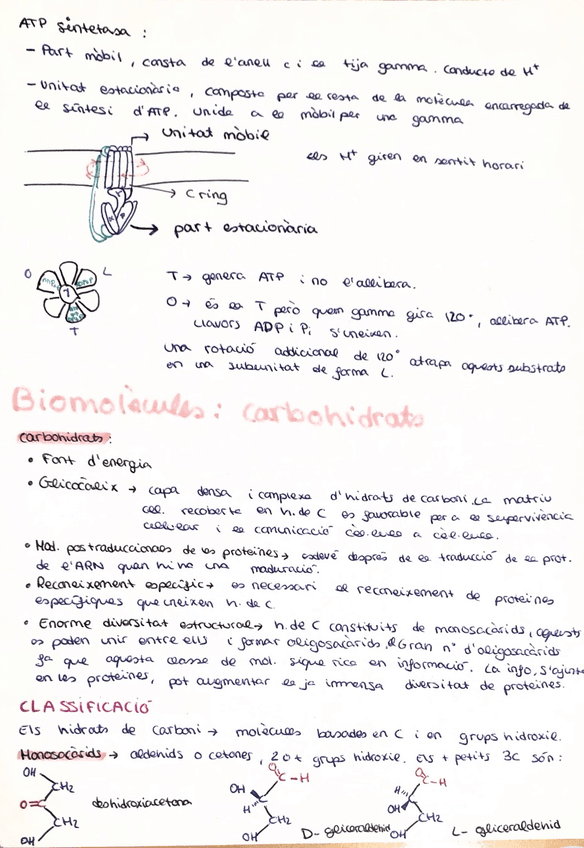 ATP sintetasa :
- Part mòbil, consta de l'anell c i la tija gamma. Conducte de H+
- Unitat estacionària, composta per la resta de la molècula encarregada de
la síntesi d'ATP. Unida a la mòbil per una gamma
→ Unitat mòbil
els H+ giren en sentit horari
→ C ring
→ part estacionària
O L
T
T → genera ATP i no l'allibera.
O → és la T però quan gamma gira 120°, allibera ATP.
Llavors ADP i Pi s'uneixen.
Una rotació addicional de 120° atrapa aquests substrats
en una subunitat de forma L.
Biomolècules: carbohidrats
carbohidrats:
• Font d'energia
• Glicocàlix → capa densa i complexa d'hidrats de carboni. La matriu
cel. recoberta en h. de C es favorable per a la supervivència
cel·lular i la comunicació cèl·lula a cèl·lula.
• Mod. postraduccionals de les proteïnes → esdevé després de la traducció de la prot.
de l'ARN quan hi ha una maduració.
• Reconeixement específic → es necessari el reconeixement de proteïnes
específiques que uneixen h. de C.
• Enorme diversitat estructural → h. de C constituits de monosacàrids, aquests
es poden unir entre ells i formar oligosacàrids. El Gran nº d'oligosacàrids
fa que aquesta classe de mol. sigue rica en informació. La info, s'ajunta
en les proteïnes, pot augmentar la ja immensa diversitat de proteïnes.
CLASSIFICACIÓ
Els hidrats de carboni → molècules basades en C i en grups hidroxil.
Monosacàrids → aldehids o cetones, 2 o + grups hidroxil. Els + petits 3C són:
OH CH2 O=C CH2 OH dihidroxiacetona
O C-H OH H CH2 OH D-gliceraldehid
O C-H H OH CH2 OH L-gliceraldehid